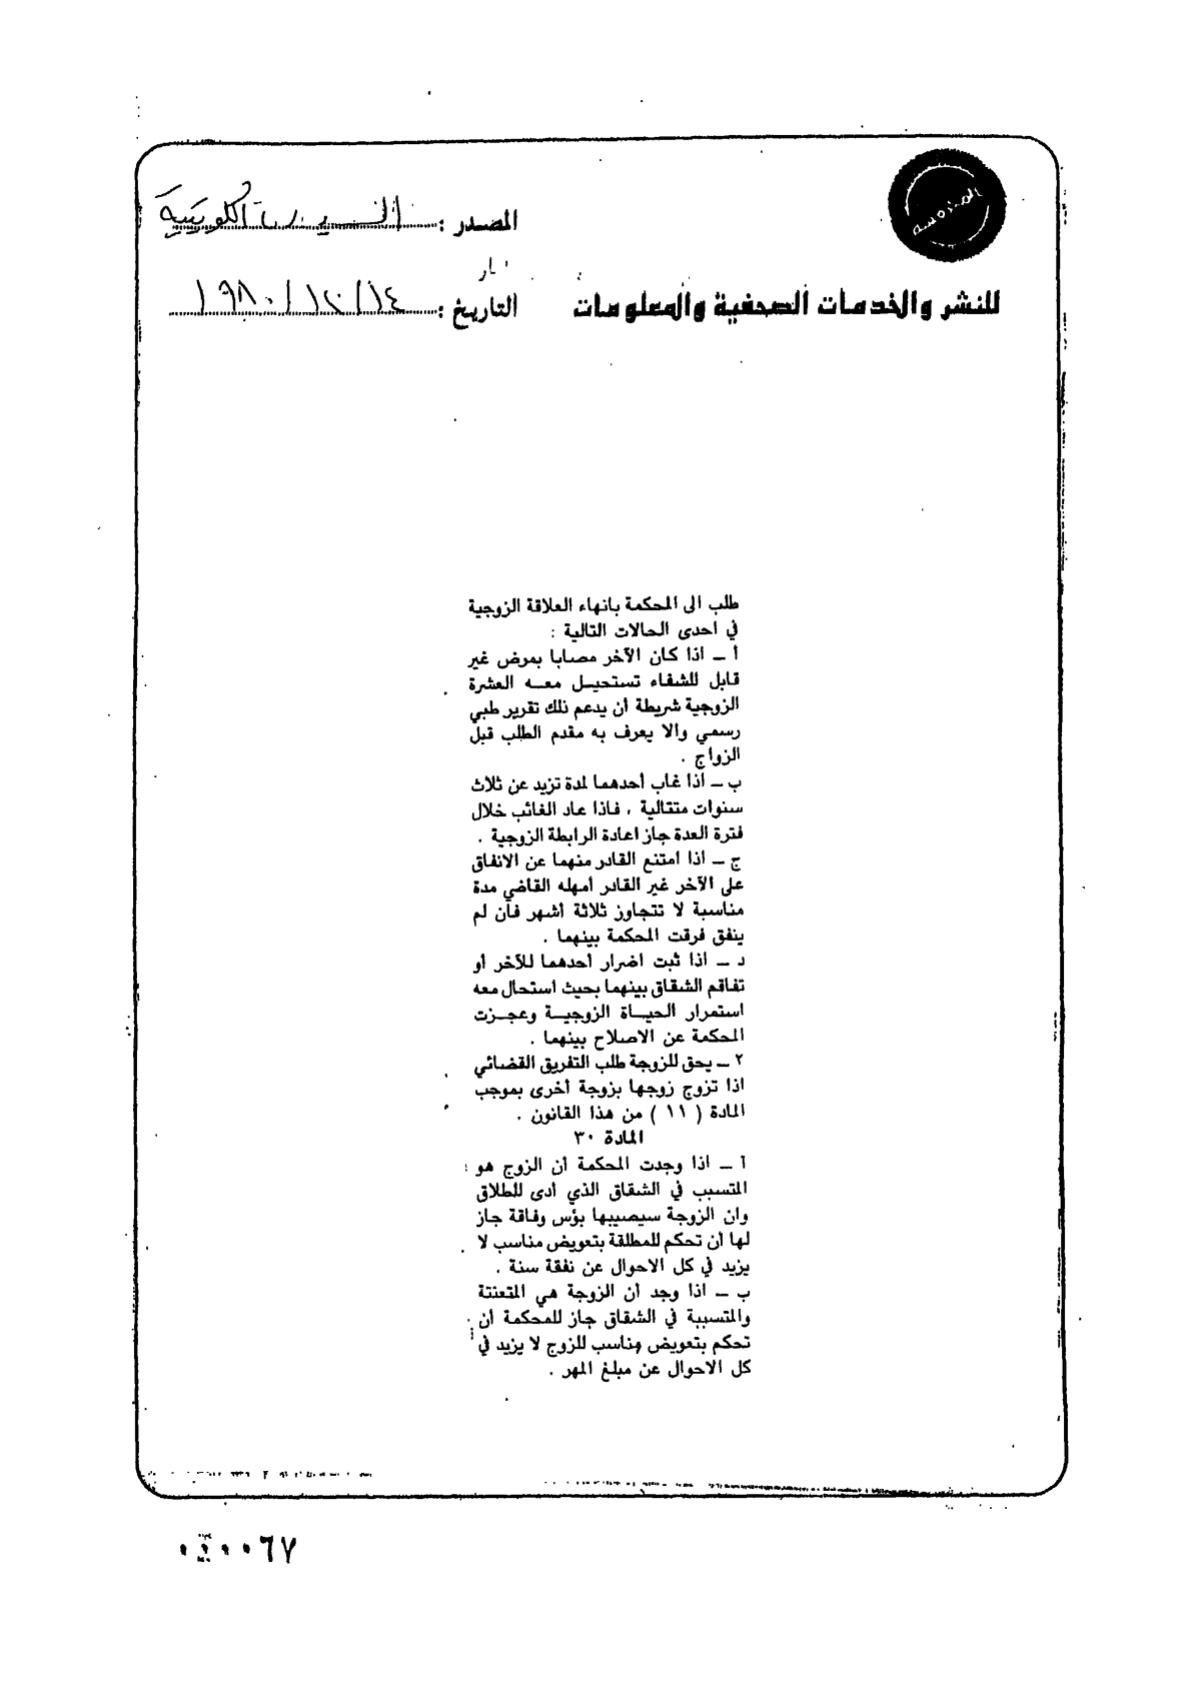 المصدر : السياسة الكويتية
للنشر والخدمات الصحفية والمعلومات
التاريخ : ١٤/١٢/١٩٨٠
طلب الى المحكمة بانهاء العلاقة الزوجية
في احدى الحالات التالية :
أ ــ اذا كان الآخر مصابا بمرض غير
قابل للشفاء تستحيل معه العشرة
الزوجية شريطة أن يدعم ذلك تقرير طبي
رسمي والا يعرف به مقدم الطلب قبل
الزواج .
ب ــ اذا غاب أحدهما لمدة تزيد عن ثلاث
سنوات متتالية ، فاذا عاد الغائب خلال
فترة العدة جاز اعادة الرابطة الزوجية .
ج ــ اذا امتنع القادر منهما عن الانفاق
على الآخر غير القادر أمهله القاضي مدة
مناسبة لا تتجاوز ثلاثة أشهر فان لم
ينفق فرقت المحكمة بينهما .
د ــ اذا ثبت اضرار أحدهما للآخر أو
تفاقم الشقاق بينهما بحيث استحال معه
استمرار الحياة الزوجية وعجزت
المحكمة عن الاصلاح بينهما .
٢ ــ يحق للزوجة طلب التفريق القضائي
اذا تزوج زوجها بزوجة أخرى بموجب
المادة ( ١١ ) من هذا القانون .
المادة ٣٠
أ ــ اذا وجدت المحكمة أن الزوج هو
المتسبب في الشقاق الذي أدى للطلاق
وان الزوجة سيصيبها بؤس وفاقة جاز
لها أن تحكم للمطلقة بتعويض مناسب لا
يزيد في كل الاحوال عن نفقة سنة .
ب ــ اذا وجد أن الزوجة هي المتعنتة
والمتسببة في الشقاق جاز للمحكمة أن
تحكم بتعويض مناسب للزوج لا يزيد في
كل الاحوال عن مبلغ المهر .